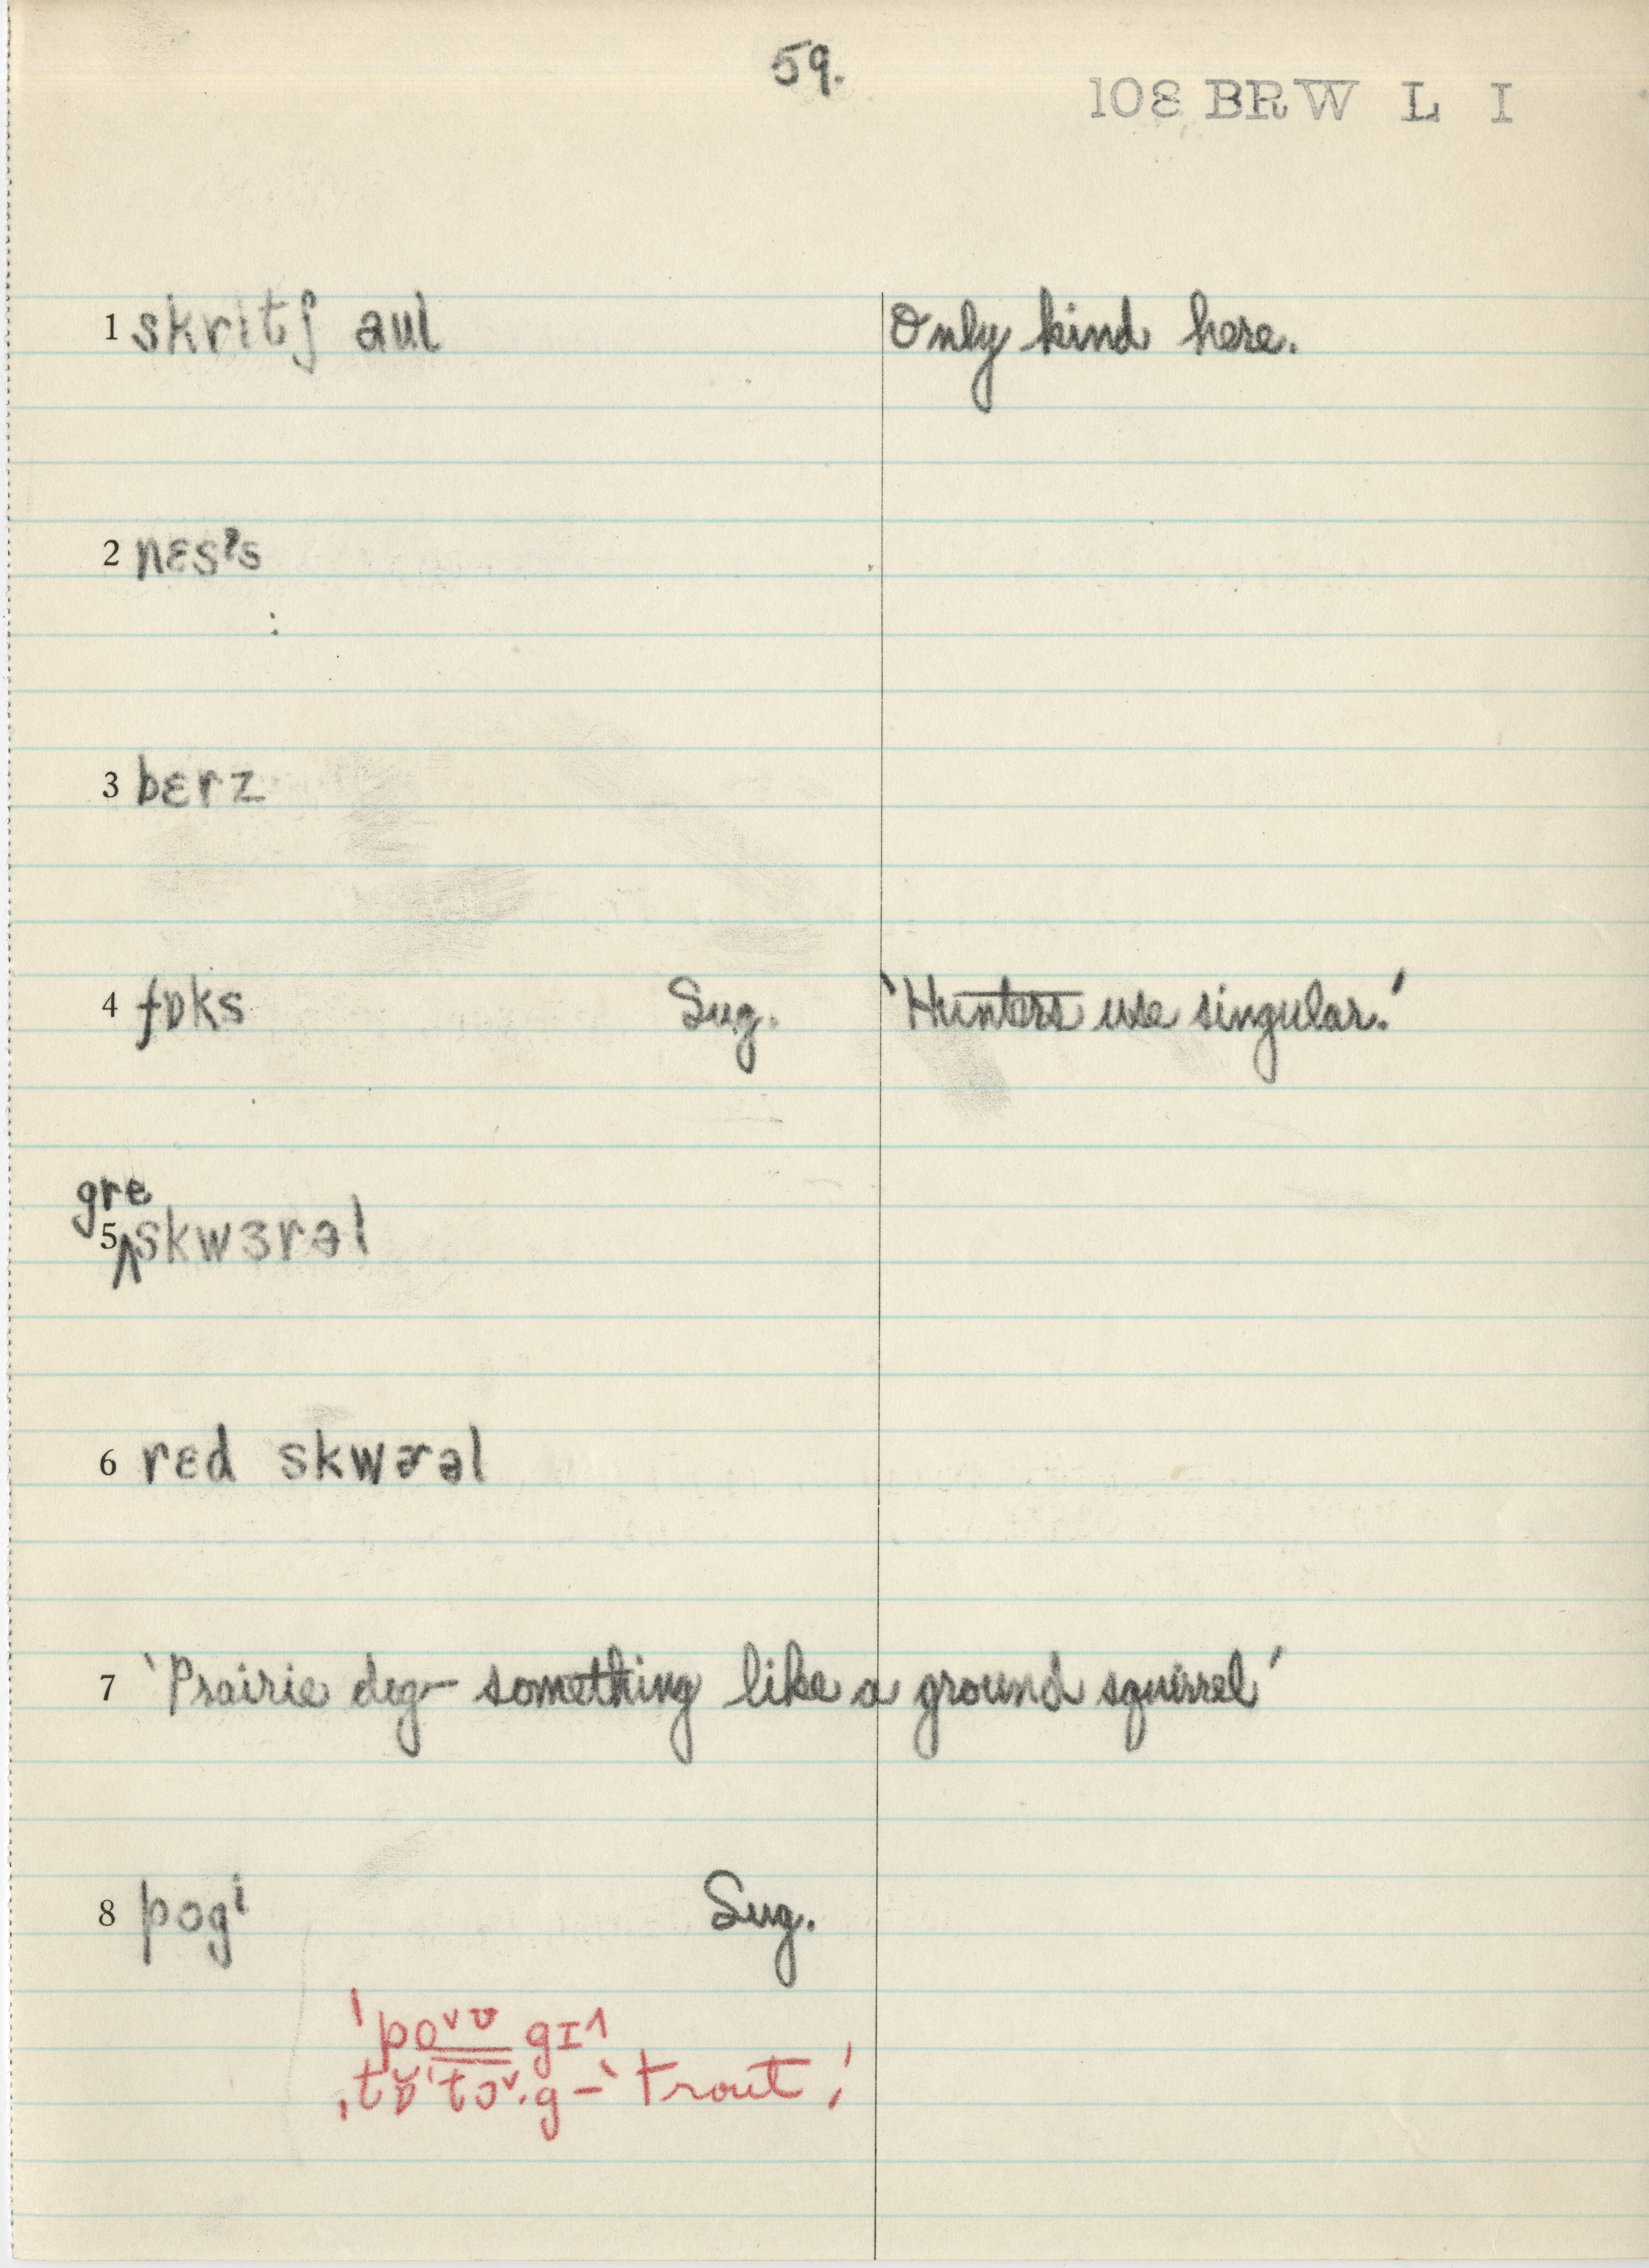 59.
108 BRW L I
1 skrɪtʃ aul Only kind here.
2 nɛsˀs
3 bɛrz
4 fɒks Sug. 'Hunters use singular.'
gre
5 ‸skwɜrəl
6 rɛd skwɚəl
7 'Prairie dog – something like a ground squirrel'
8 pogⁱ Sug.
ˈpo˅ʊ gɪ˄
ˌtɒ̌ˈtɔ˅·g – 'trout'!